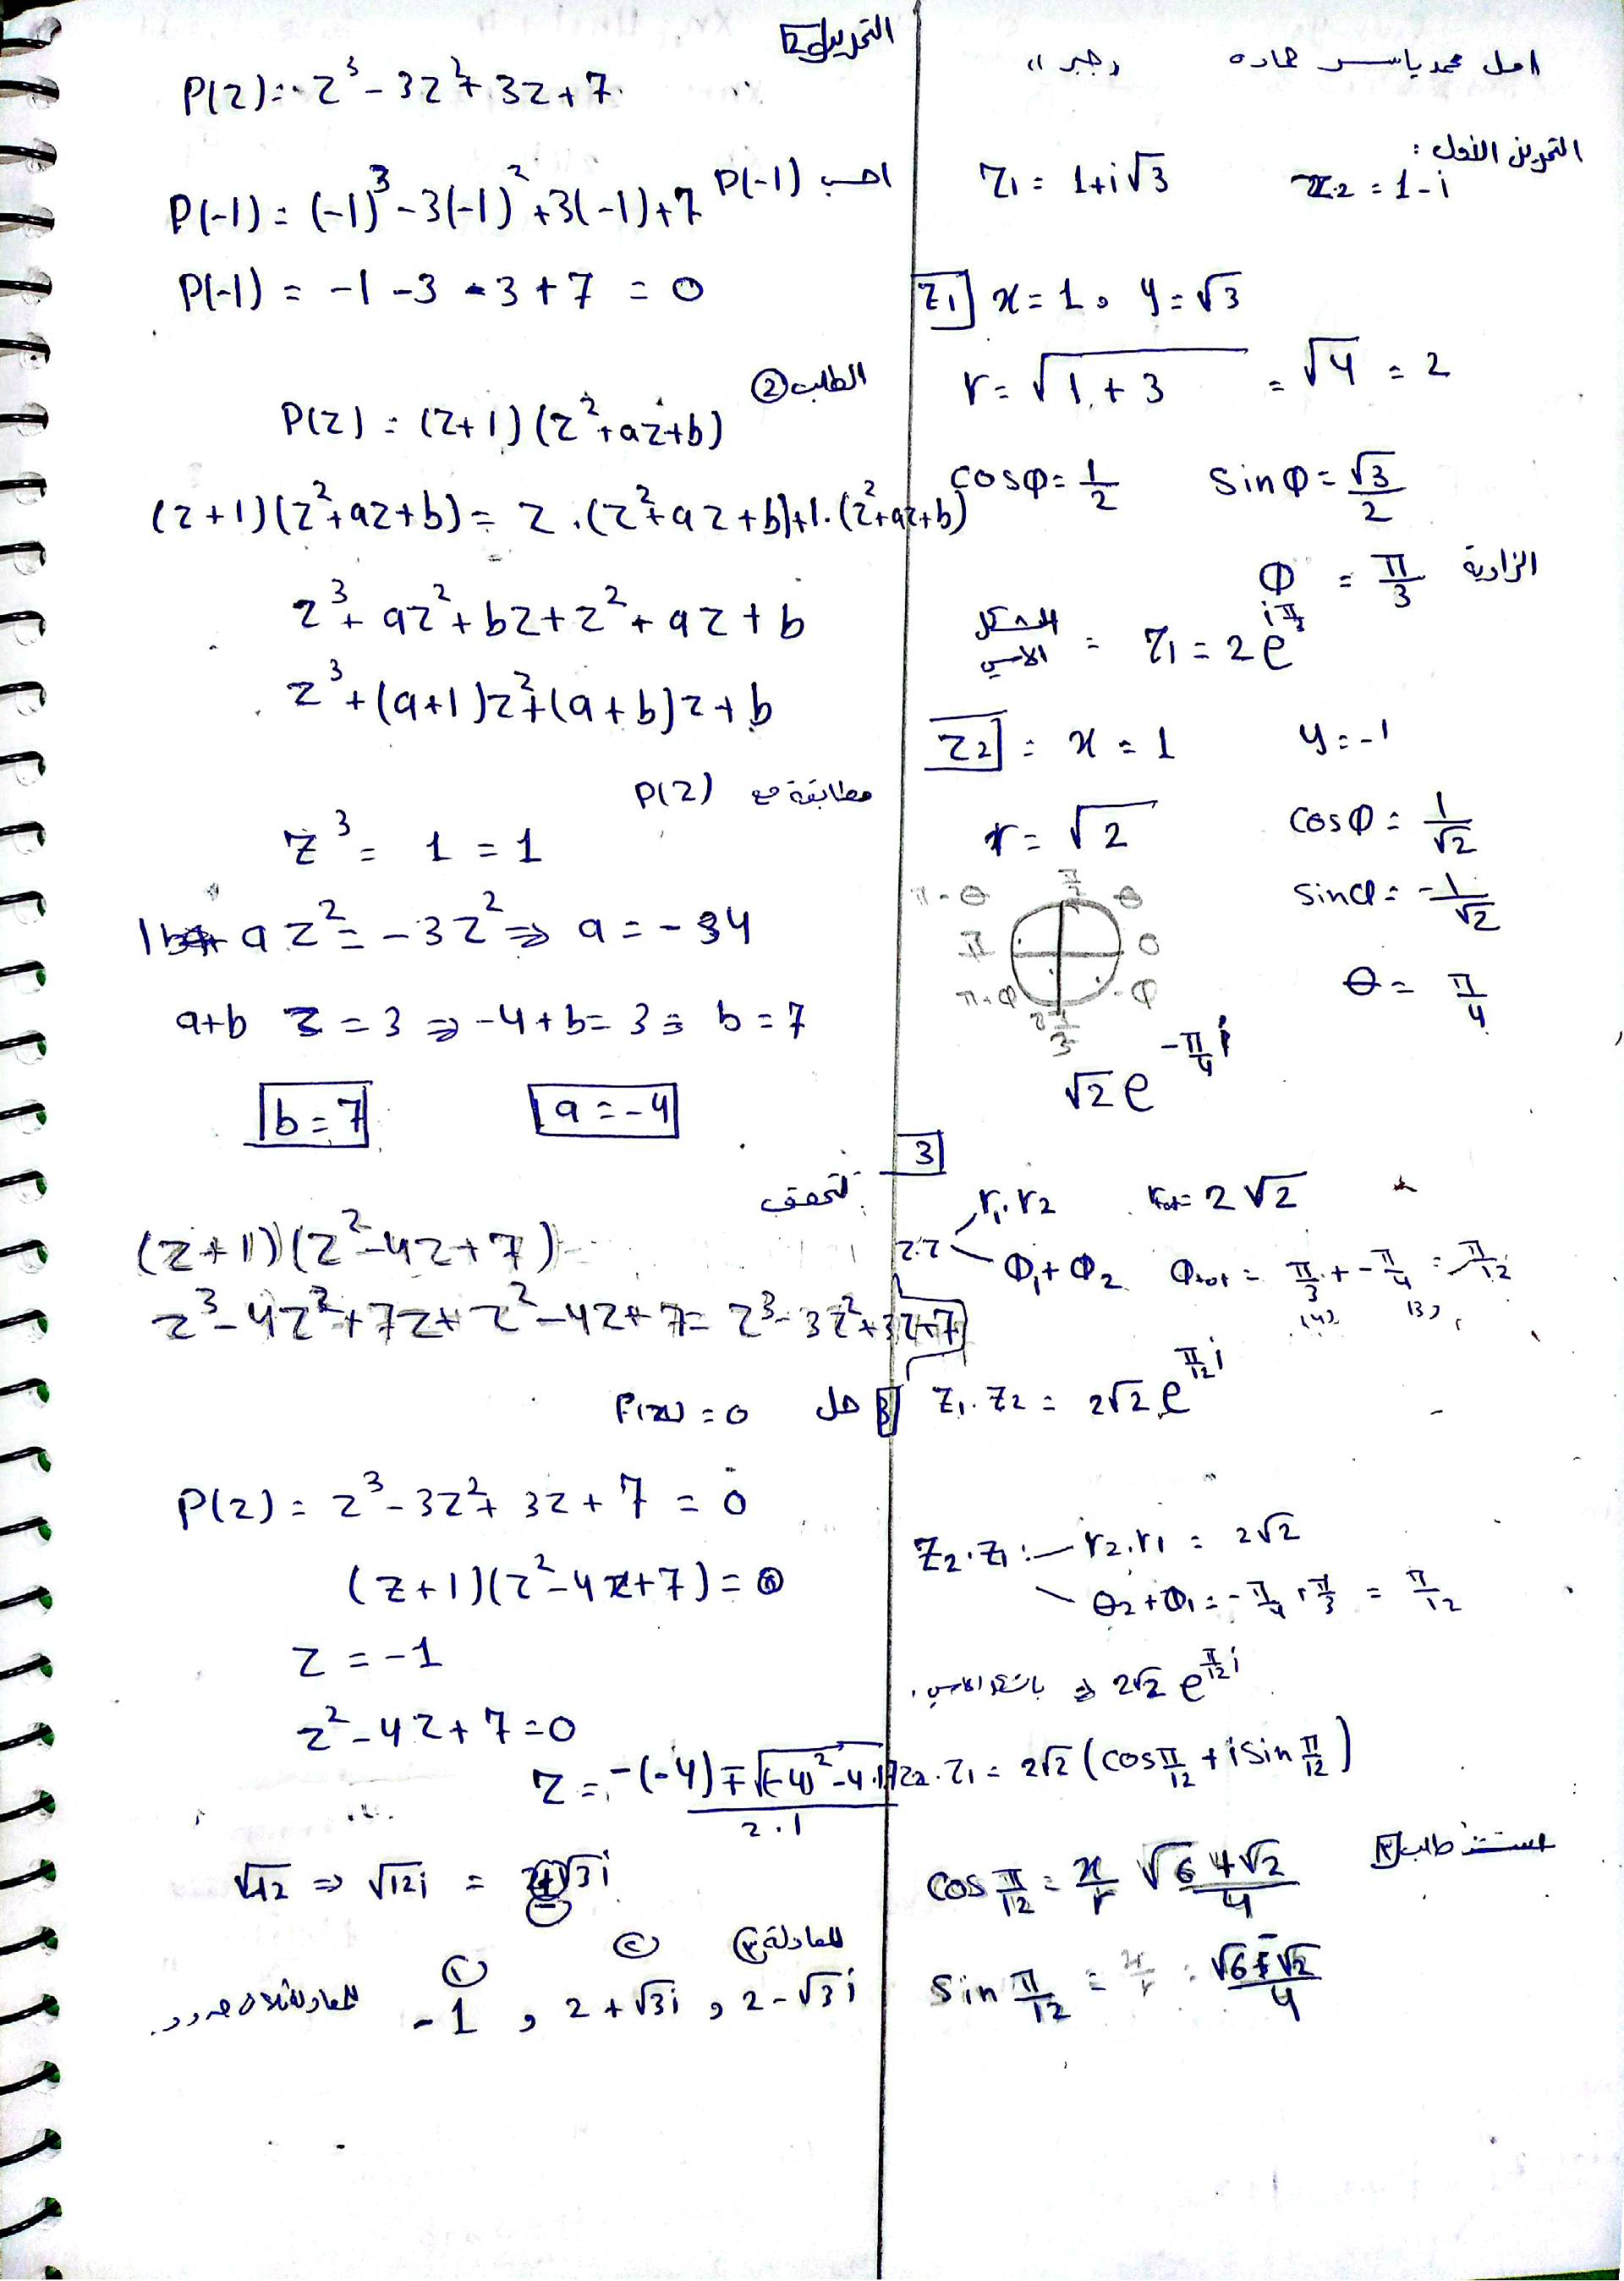 امل محمد ياسر حماده "جبر"
التمرين الأول :
z1 = 1+i√3    z2 = 1-i
z1] x = 1 , y = √3
r = √1+3 = √4 = 2
cosφ = 1/2    sinφ = √3/2
الزاوية φ = π/3
الشكل الاسي = z1 = 2e^iπ/3
z2] = x = 1    y = -1
r = √2    cosφ = 1/√2
sinφ = -1/√2
π-θ π/2 θ
π 0
π+φ -φ
3π/3
θ = π/4
√2 e^-π/4 i
3]
z.z r1.r2    rtot = 2√2
φ1+φ2    φtot = π/3 + -π/4 = π/12
(4) (3)
z1.z2 = 2√2 e^π/12 i
z2.z1 : r2.r1 = 2√2
θ2+φ1 = -π/4 + π/3 = π/12
بالشكل الاسي ⇒ 2√2 e^π/12 i
z2.z1 = 2√2 (cos π/12 + i sin π/12)
طلب 3
cos π/12 = x/r √6+√2/4
sin π/12 = √6-√2/4
التمرين 2
P(z) = z³-3z²+3z+7
احسب P(-1)
P(-1) = (-1)³-3(-1)²+3(-1)+7
P(-1) = -1-3-3+7 = 0
الطلب ②
P(z) = (z+1)(z²+az+b)
(z+1)(z²+az+b) = z.(z²+az+b)+1.(z²+az+b)
z³+az²+bz+z²+az+b
z³+(a+1)z²+(a+b)z+b
مطابقة مع P(z)
z³ = 1 = 1
az² = -3z² ⇒ a = -4
a+b = 3 ⇒ -4+b = 3 ⇒ b = 7
b = 7    a = -4
التحقق
(z+1)(z²-4z+7)=
z³-4z²+7z+z²-4z+7 = z³-3z²+3z+7
3] حل P(z) = 0
P(z) = z³-3z²+3z+7 = 0
(z+1)(z²-4z+7) = 0
z = -1
z²-4z+7=0
z = -(-4)∓√(-4)²-4.1.7 / 2.1
√-12 ⇒ √12i = √3i
للمعادلة
① ② ③
-1 , 2+√3i , 2-√3i